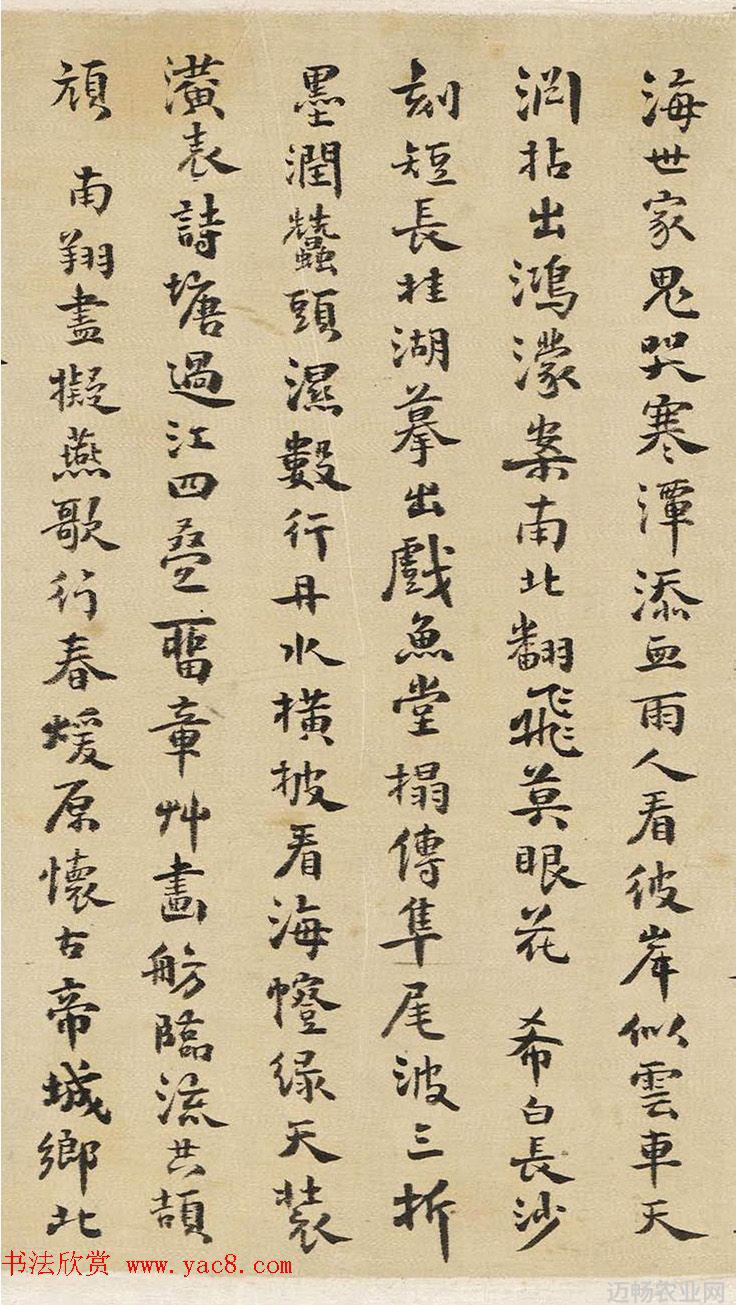 海世家鬼哭寒潭添血雨人看彼岸似雲車天
淵拈出鴻濛案南北翻飛莫眼花 希白長沙
刻短長桂湖摹出戲魚堂搨傳隼尾波三折
墨潤蠶頭濕數行丹水橫披看海綠天裝
潢表詩塘過江四疊畱章艸畫舫臨流共頡
頏 南翔盡擬燕歌行春煖原懷古帝城鄉北
书法欣赏 www.yac8.com
迈畅农业网